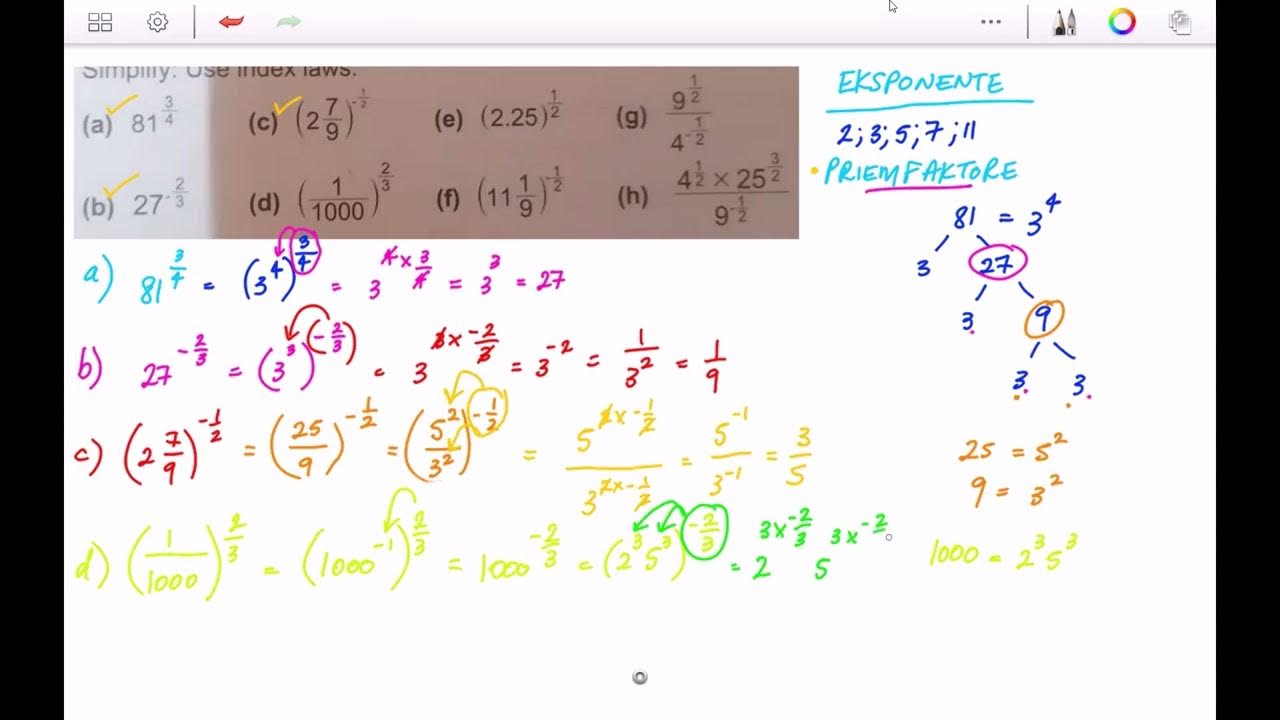 Simplify: Use index laws.
(a) 81^{3/4} (c) (2 7/9)^{-1/2} (e) (2.25)^{1/2} (g) 9^{1/2} / 4^{-1/2}
(b) 27^{-2/3} (d) (1/1000)^{2/3} (f) (11 1/9)^{-1/2} (h) 4^{1/2} × 25^{3/2} / 9^{-1/2}
EKSPONENTE
2;3;5;7;11
• PRIEMFAKTORE
81 = 3^4
3 27
3 9
3 3
a) 81^{3/4} = (3^4)^{3/4} = 3^{4 × 3/4} = 3^3 = 27
b) 27^{-2/3} = (3^3)^{(-2/3)} = 3^{3 × -2/3} = 3^{-2} = 1/3^2 = 1/9
c) (2 7/9)^{-1/2} = (25/9)^{-1/2} = (5^2/3^2)^{-1/2} = 5^{2 × -1/2} / 3^{2 × -1/2} = 5^{-1}/3^{-1} = 3/5
25 = 5^2
9 = 3^2
d) (1/1000)^{2/3} = (1000^{-1})^{2/3} = 1000^{-2/3} = (2^3 5^3)^{-2/3} = 2^{3 × -2/3} 5^{3 × -2/}
1000 = 2^3 5^3